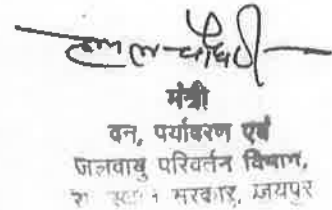 मंत्री
वन, पर्यावरण एवं
जलवायु परिवर्तन विभाग,
सरकार, जयपुर